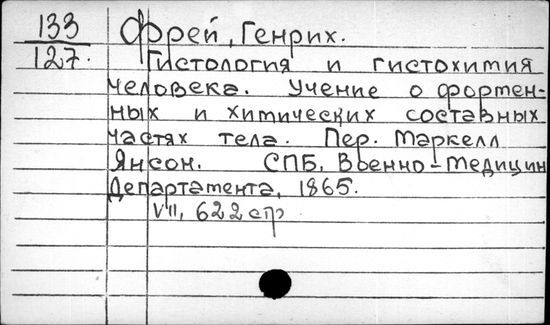 133 Фрей, Генрих.
127. Гистология и гистохимия
человека. Учение о формен-
ных и химических составных
частях тела. Пер. Маркелл
Янсон. СПБ, Военно-Медицин
Департамента, 1865.
VII, 622 стр